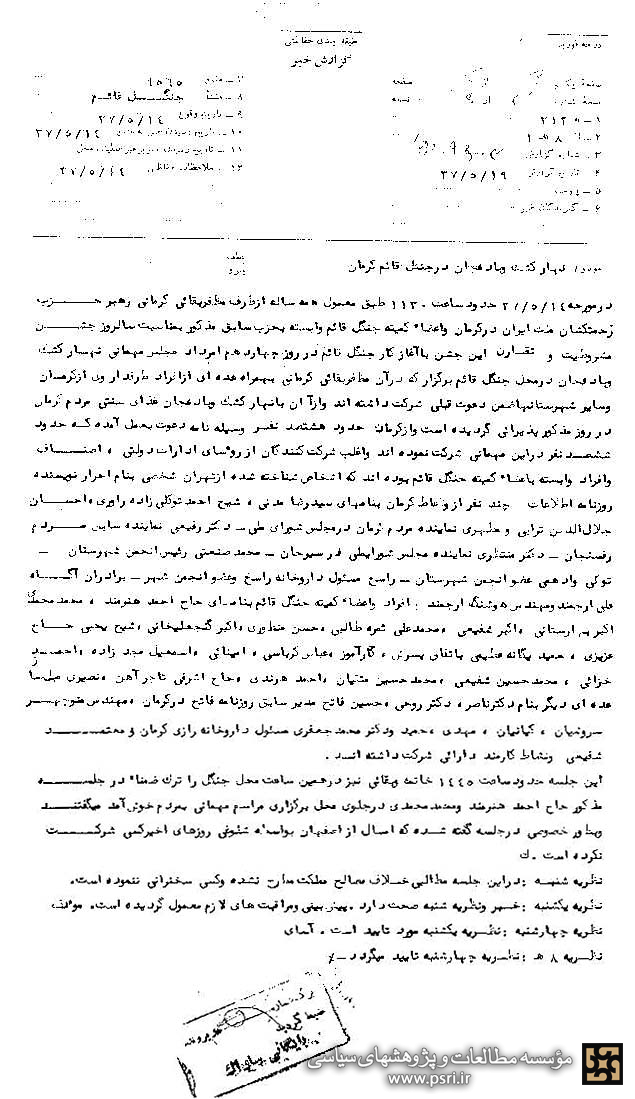 طبقه بندی حفاظتی
گزارش خبر
صفحه یکم از صفحه
نسخه شماره از نسخه
۱ـ به ۲۱۲
۲ـ از ۸ هـ ۱
۳ـ شماره گزارش
۴ـ تاریخ گزارش ۳۷/۵/۱۹
۵ـ پیوست
۶ـ گیرندگان خبر
۷ـ منبع ۱۵۶۵
۸ـ منشأ جنگل قائم
۹ـ تاریخ وقوع ۳۷/۵/۱۴
۱۰ـ تاریخ رسیدن خبر به منبع ۳۷/۵/۱۴
۱۱ـ تاریخ رسیدن خبر به رهبر عملیات محل
۱۲ـ ملاحظات حفاظتی ۳۷/۵/۱۴
موضوع نهار کشک وبادمجان درجنگل قائم کرمان
درمورخه ۳۷/۵/۱۴ حدود ساعت ۱۱۳۰ طبق معمول همه ساله ازطرف مظفربقائی کرمانی رهبر حزب
زحمتکشان ملت ایران درکرمان واعضاء کمیته جنگل قائم وابسته بحزب سابق مذکور بمناسبت سالروز جشن
مشروطیت و تقارن این جشن باآغاز کار جنگل قائم در روز چهاردهم امرداد مجلس مهمانی نهار کشک
وبادمجان درمحل جنگل قائم برگزار که درآن مظفربقائی کرمانی بهمراه عده ای ازافراد طرفدار وی ازکرمان
وسایر شهرستانها ضمن دعوت قبلی شرکت داشته اند وازآن بانهار کشک وبادمجان غذای سنتی مردم کرمان
در روز مذکور پذیرائی گردیده است وازکرمان حدود هشتصد نفر وسیله نامه دعوت بعمل آمده که حدود
ششصد نفر دراین مهمانی شرکت نموده اند واغلب شرکت کنندگان از روئسای ادارات دولتی ، اصناف
وافراد وابسته باعضاء کمیته جنگل قائم بوده اند که اشخاص شناخته شده ازتهران شخصی بنام احرار نویسنده
روزنامه اطلاعات چند نفر از وعاظ کرمان بنامهای سیدرضا مدنی ، شیخ احمد توکلی زاده راوری ، احسان
جلال الدین ترابی و مطهری نماینده مردم کرمان درمجلس شورای ملی ـ دکتر رفیعی نماینده سابق مردم
رفسنجان ـ دکتر منتظری نماینده مجلس شورایملی در سیرجان ـ محمد صنعتی رئیس انجمن شهرستان ـ
توکلی وادهمی عضو انجمن شهرستان ـ راسخ مسئول داروخانه راسخ وعضو انجمن شهر ـ برادران آگاه
علی ارجمند ومهندس هوشنگ ارجمند ، افراد واعضاء کمیته جنگل قائم بنامهای حاج احمد هنرمند ، محمد
اکبر بهارستانی ، اکبر شفیعی ، محمدعلی ثمره طالبی ، حسن منظوری ، اکبر گنجعلیخانی ، شیخ یحیی حاج
عزیزی ، حمید یگانه عظیمی باتفاق پسرش ، کارآموز ، عباس کرباسی ، امینائی ، اسمعیل مجد زاده ، احمد
خزائی ، محمدحسین شفیعی ، محمدحسین متقیان ، احمد هرندی ، حاج اشرفی تاجر آهن ، نصیری
عده ای دیگر بنام دکترناصر ، دکتر روحی ، حسین فاتح مدیر سابق روزنامه فاتح درکرمان ، مهندس منوچهر
سروشیان ، کیانیان ، مهدی ، حمید ودکتر محمد جعفری مسئول داروخانه رازی کرمان و معتمد
شفیعی ونشاط کارمند دارائی شرکت داشته اند .
این جلسه حدود ساعت ۱۴۴۵ خاتمه وبقائی نیز درهمین ساعت محل جنگل را ترک ضمناً در جلسه
مذکور حاج احمد هنرمند ومحمدمحمدی درجلوی محل برگزاری مراسم مهمانی بمردم خوش آمد میگفتند
وبطور خصوصی درجلسه گفته شده که امسال از اصفهان بواسطه شلوغی روزهای اخیر کسی شرکت
نکرده است . ك
نظریه شنبه : دراین جلسه مطالبی خلاف مصالح مملکت مطرح نشده وکسی سخنرانی ننموده است.
نظریه یکشنبه : خبر ونظریه شنبه صحت دارد . پیش بینی ومراقبت های لازم معمول گردیده است.
نظریه چهارشنبه : نظریه یکشنبه مورد تایید است .
نظریه ۸ هـ : نظریه چهارشنبه تایید میگردد
ضبط گردید
بایگانی
مؤسسه مطالعات و پژوهشهای سیاسی
www.psri.ir